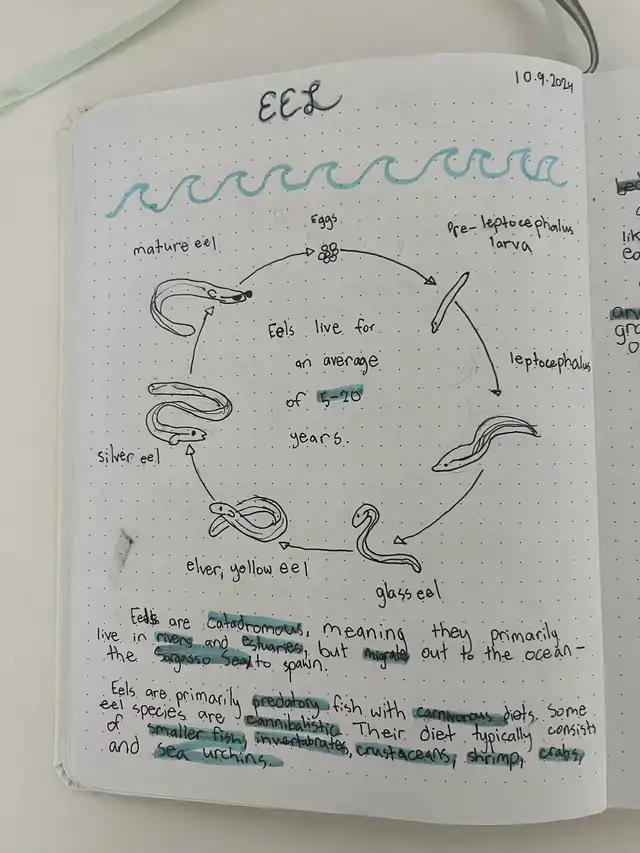 10.9.2024
EEL
Eggs
Pre-leptocephalus
larva
mature eel
Eels live for
an average
of 5-20
years.
leptocephalus
silver eel
elver, yellow eel
glass eel
Eels are catadromous, meaning they primarily
live in rivers and estuaries, but migrate out to the ocean-
the Sargasso Sea, to spawn.
Eels are primarily predatory fish with carnivorous diets. Some
eel species are cannibalistic. Their diet typically consists
of smaller fish, invertabrates, crustaceans, shrimp, crabs,
and sea urchins.